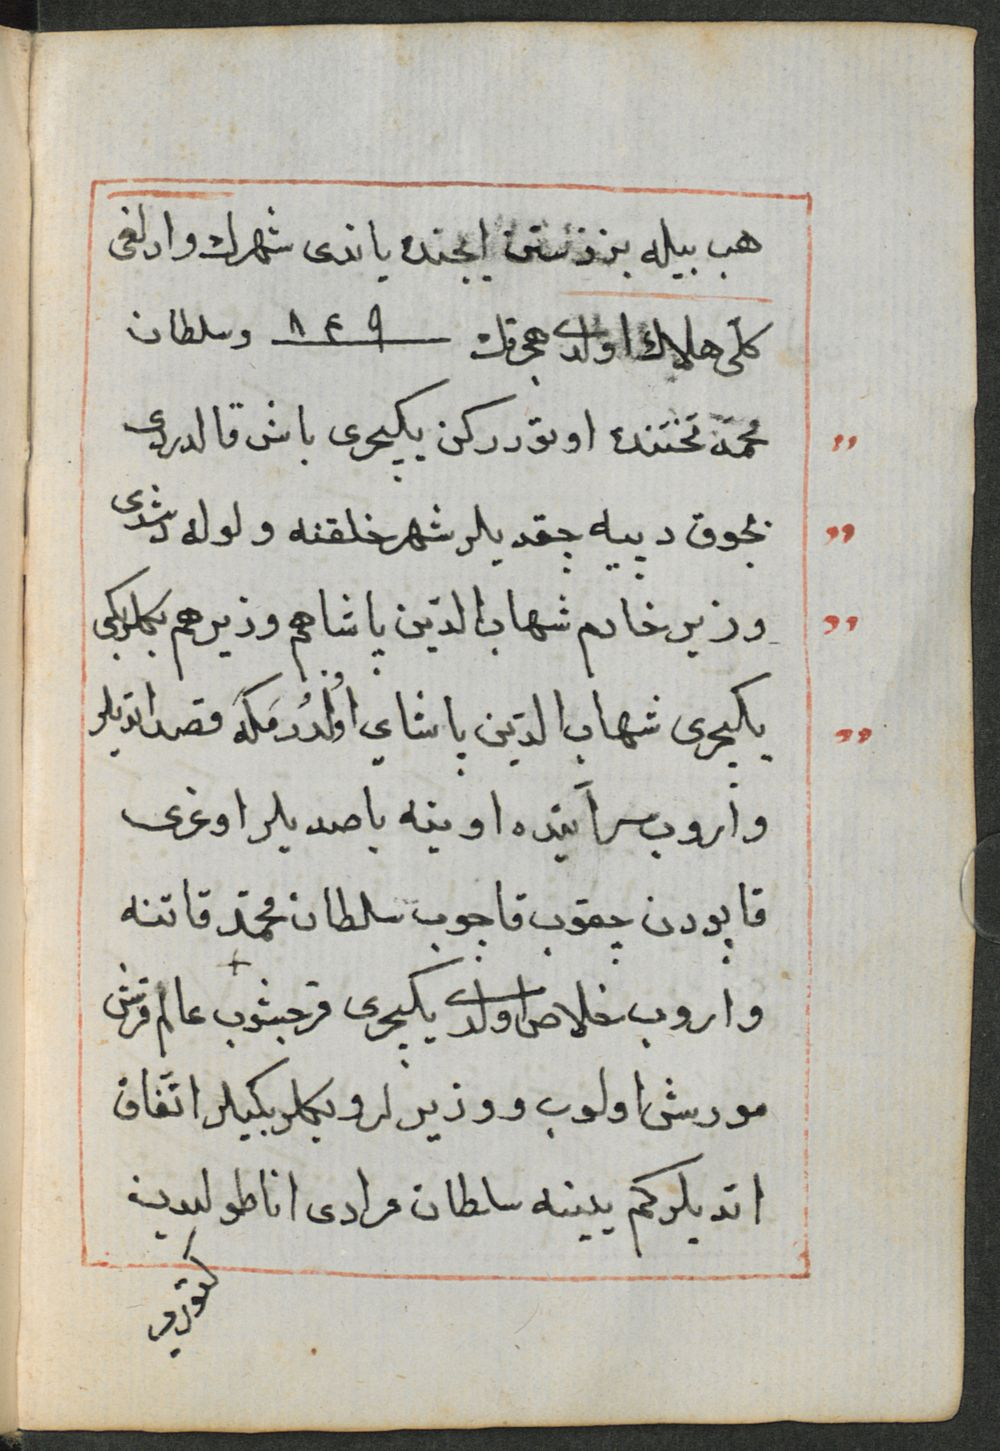 هب بيله بززستن ايچنده ياندى شهرك وارلغى
كلّى هلاك اولدى هجرتك ۸٤۹ وسلطان
محمّد تختنده اوتوررکن يکيچرى باش قالدردى
بچوق دييه چقديلر شهر خلقنه ولوله دشدى
وزير خادم شهاب الدّين پاشا هم وزير هم بکلربکى
يکيچرى شهاب الدّين پاشاي اُولدُرمَکه قصد ايتديلر
واروب سرآينده اوينه باصديلر اوغرى
قاپودن چقوب قاچوب سلطان محمّد قاتنه
واروب خلاص اولدى يکيچرى قرجشوب عالم قرش
مورش اولوب ووزيرلر وبکلربکيلر اتّفاق
اتديلر کم يينه سلطان مرادى اناطوليدن
کتوره